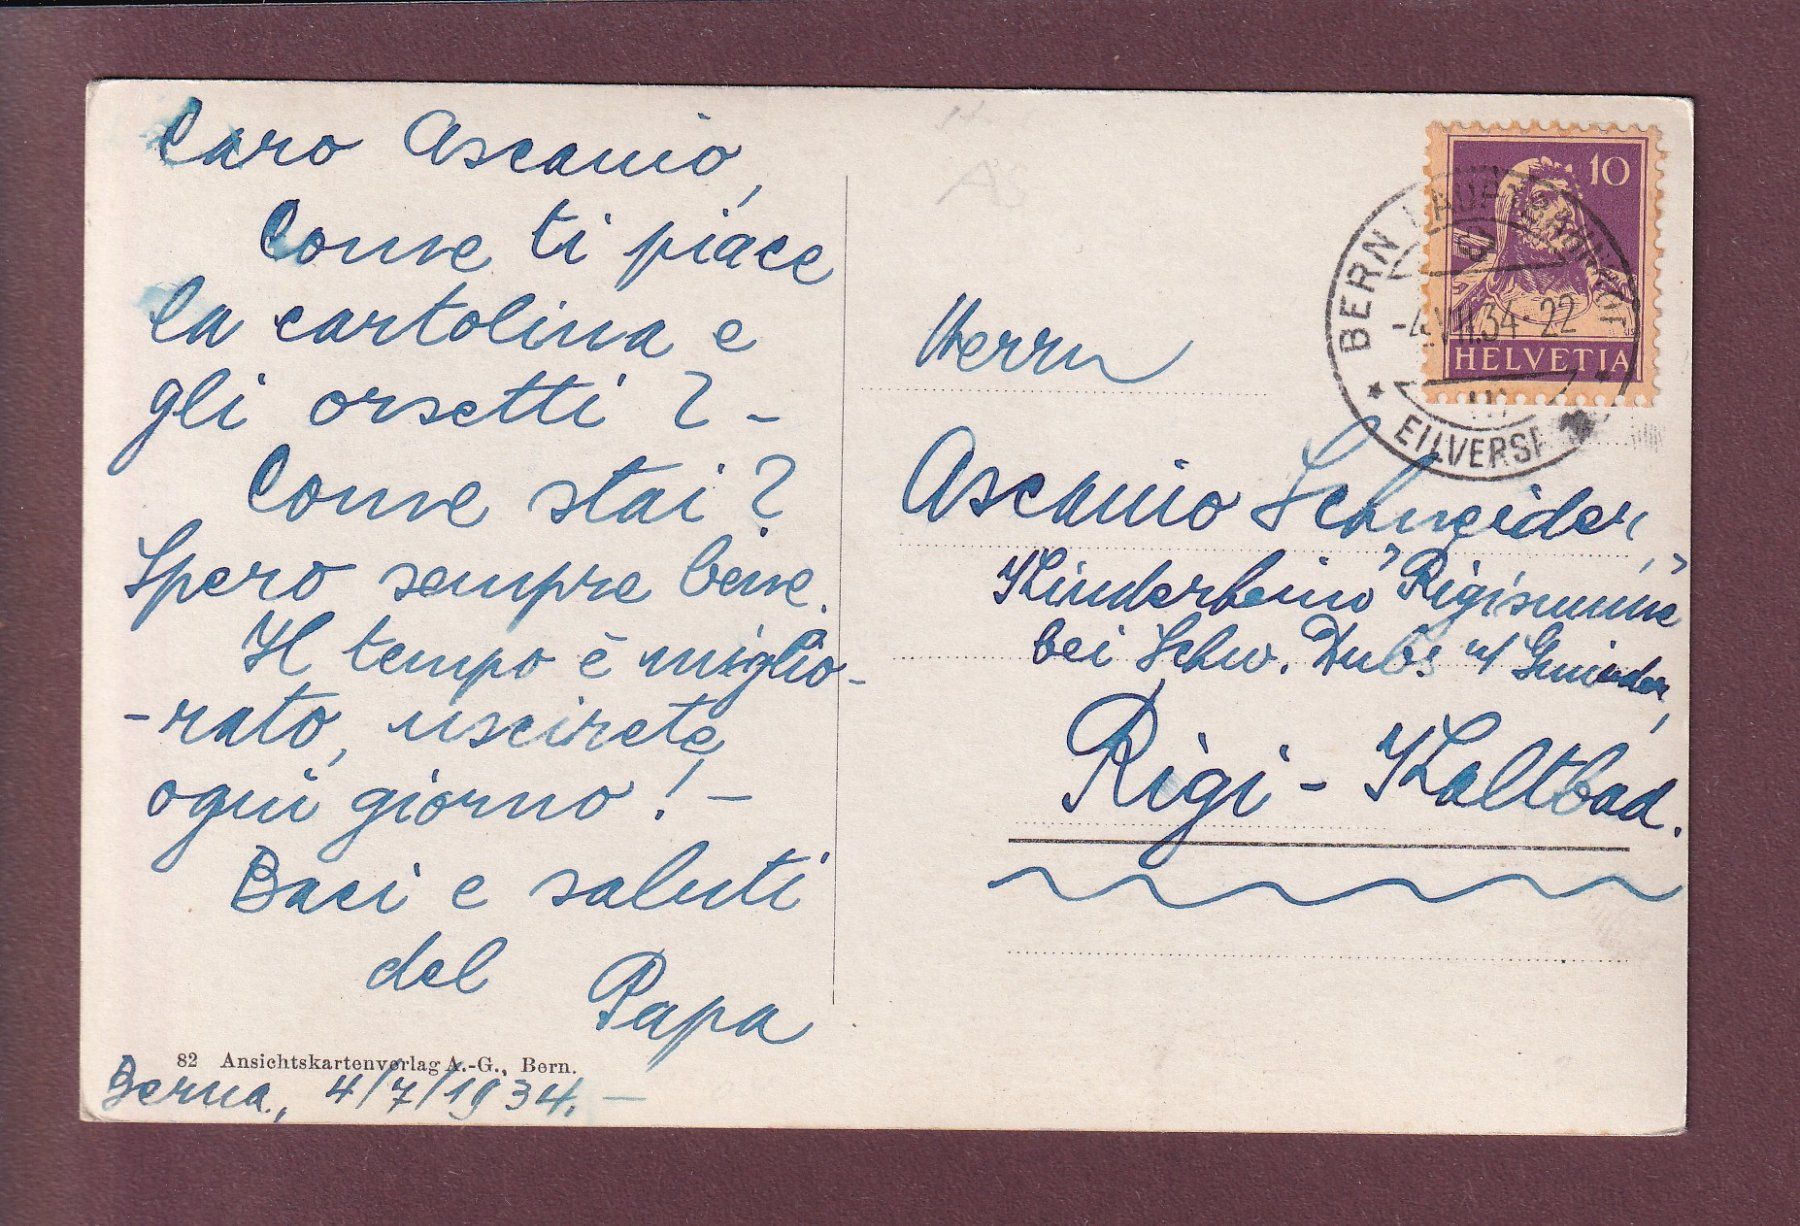 Caro Ascanio,
Come ti piace
la cartolina e
gli orsetti ? -
Come stai ?
Spero sempre bene.
Il tempo è miglio-
-rato, uscirete
ogni giorno ! -
Baci e saluti
del Papa
82 Ansichtskartenverlag A.-G., Bern.
Berna, 4/7/1934. -
AS
10
HELVETIA
BERN
-4.VII.34-22
III
EILVERS
Herrn
Ascanio Schneider,
Kinderheim "Rigisunne"
bei Schw. Dubs u/ Gmünder,
Rigi - Kaltbad.